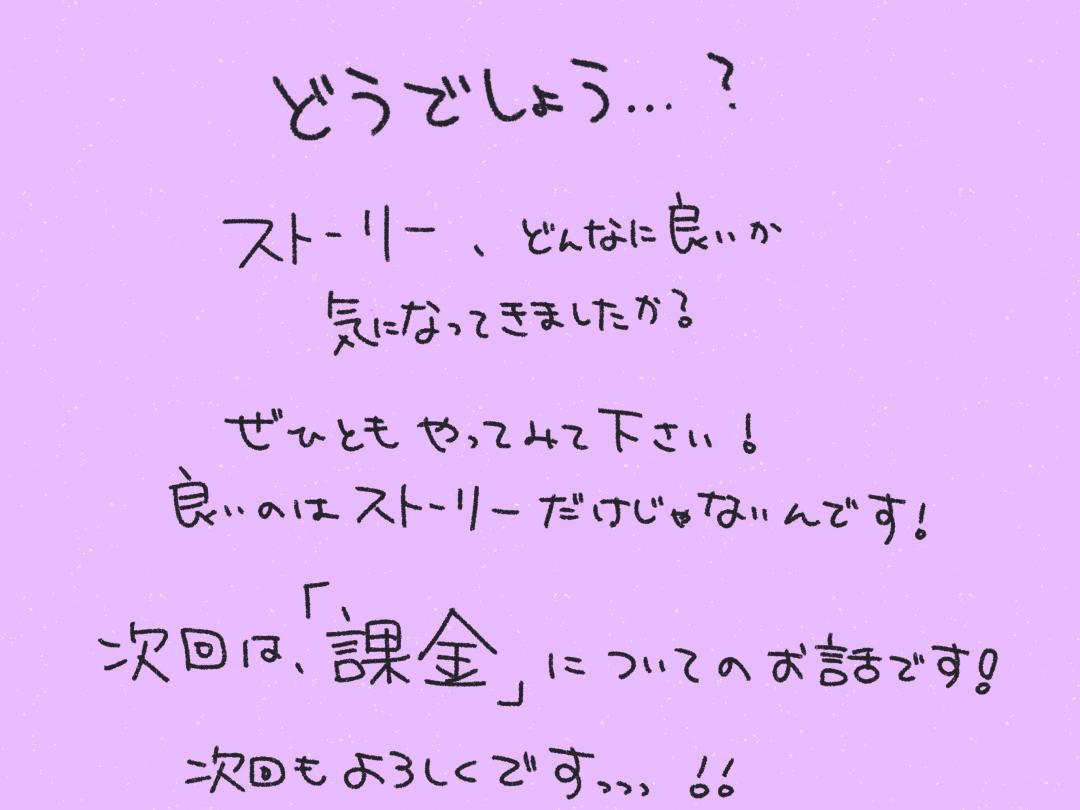 どうでしょう…?
ストーリー、どんなに良いか
気になってきましたか?
ぜひともやってみて下さい!
良いのはストーリーだけじゃないんです!
次回は、「課金」についてのお話です!
次回もよろしくですっっっ!!